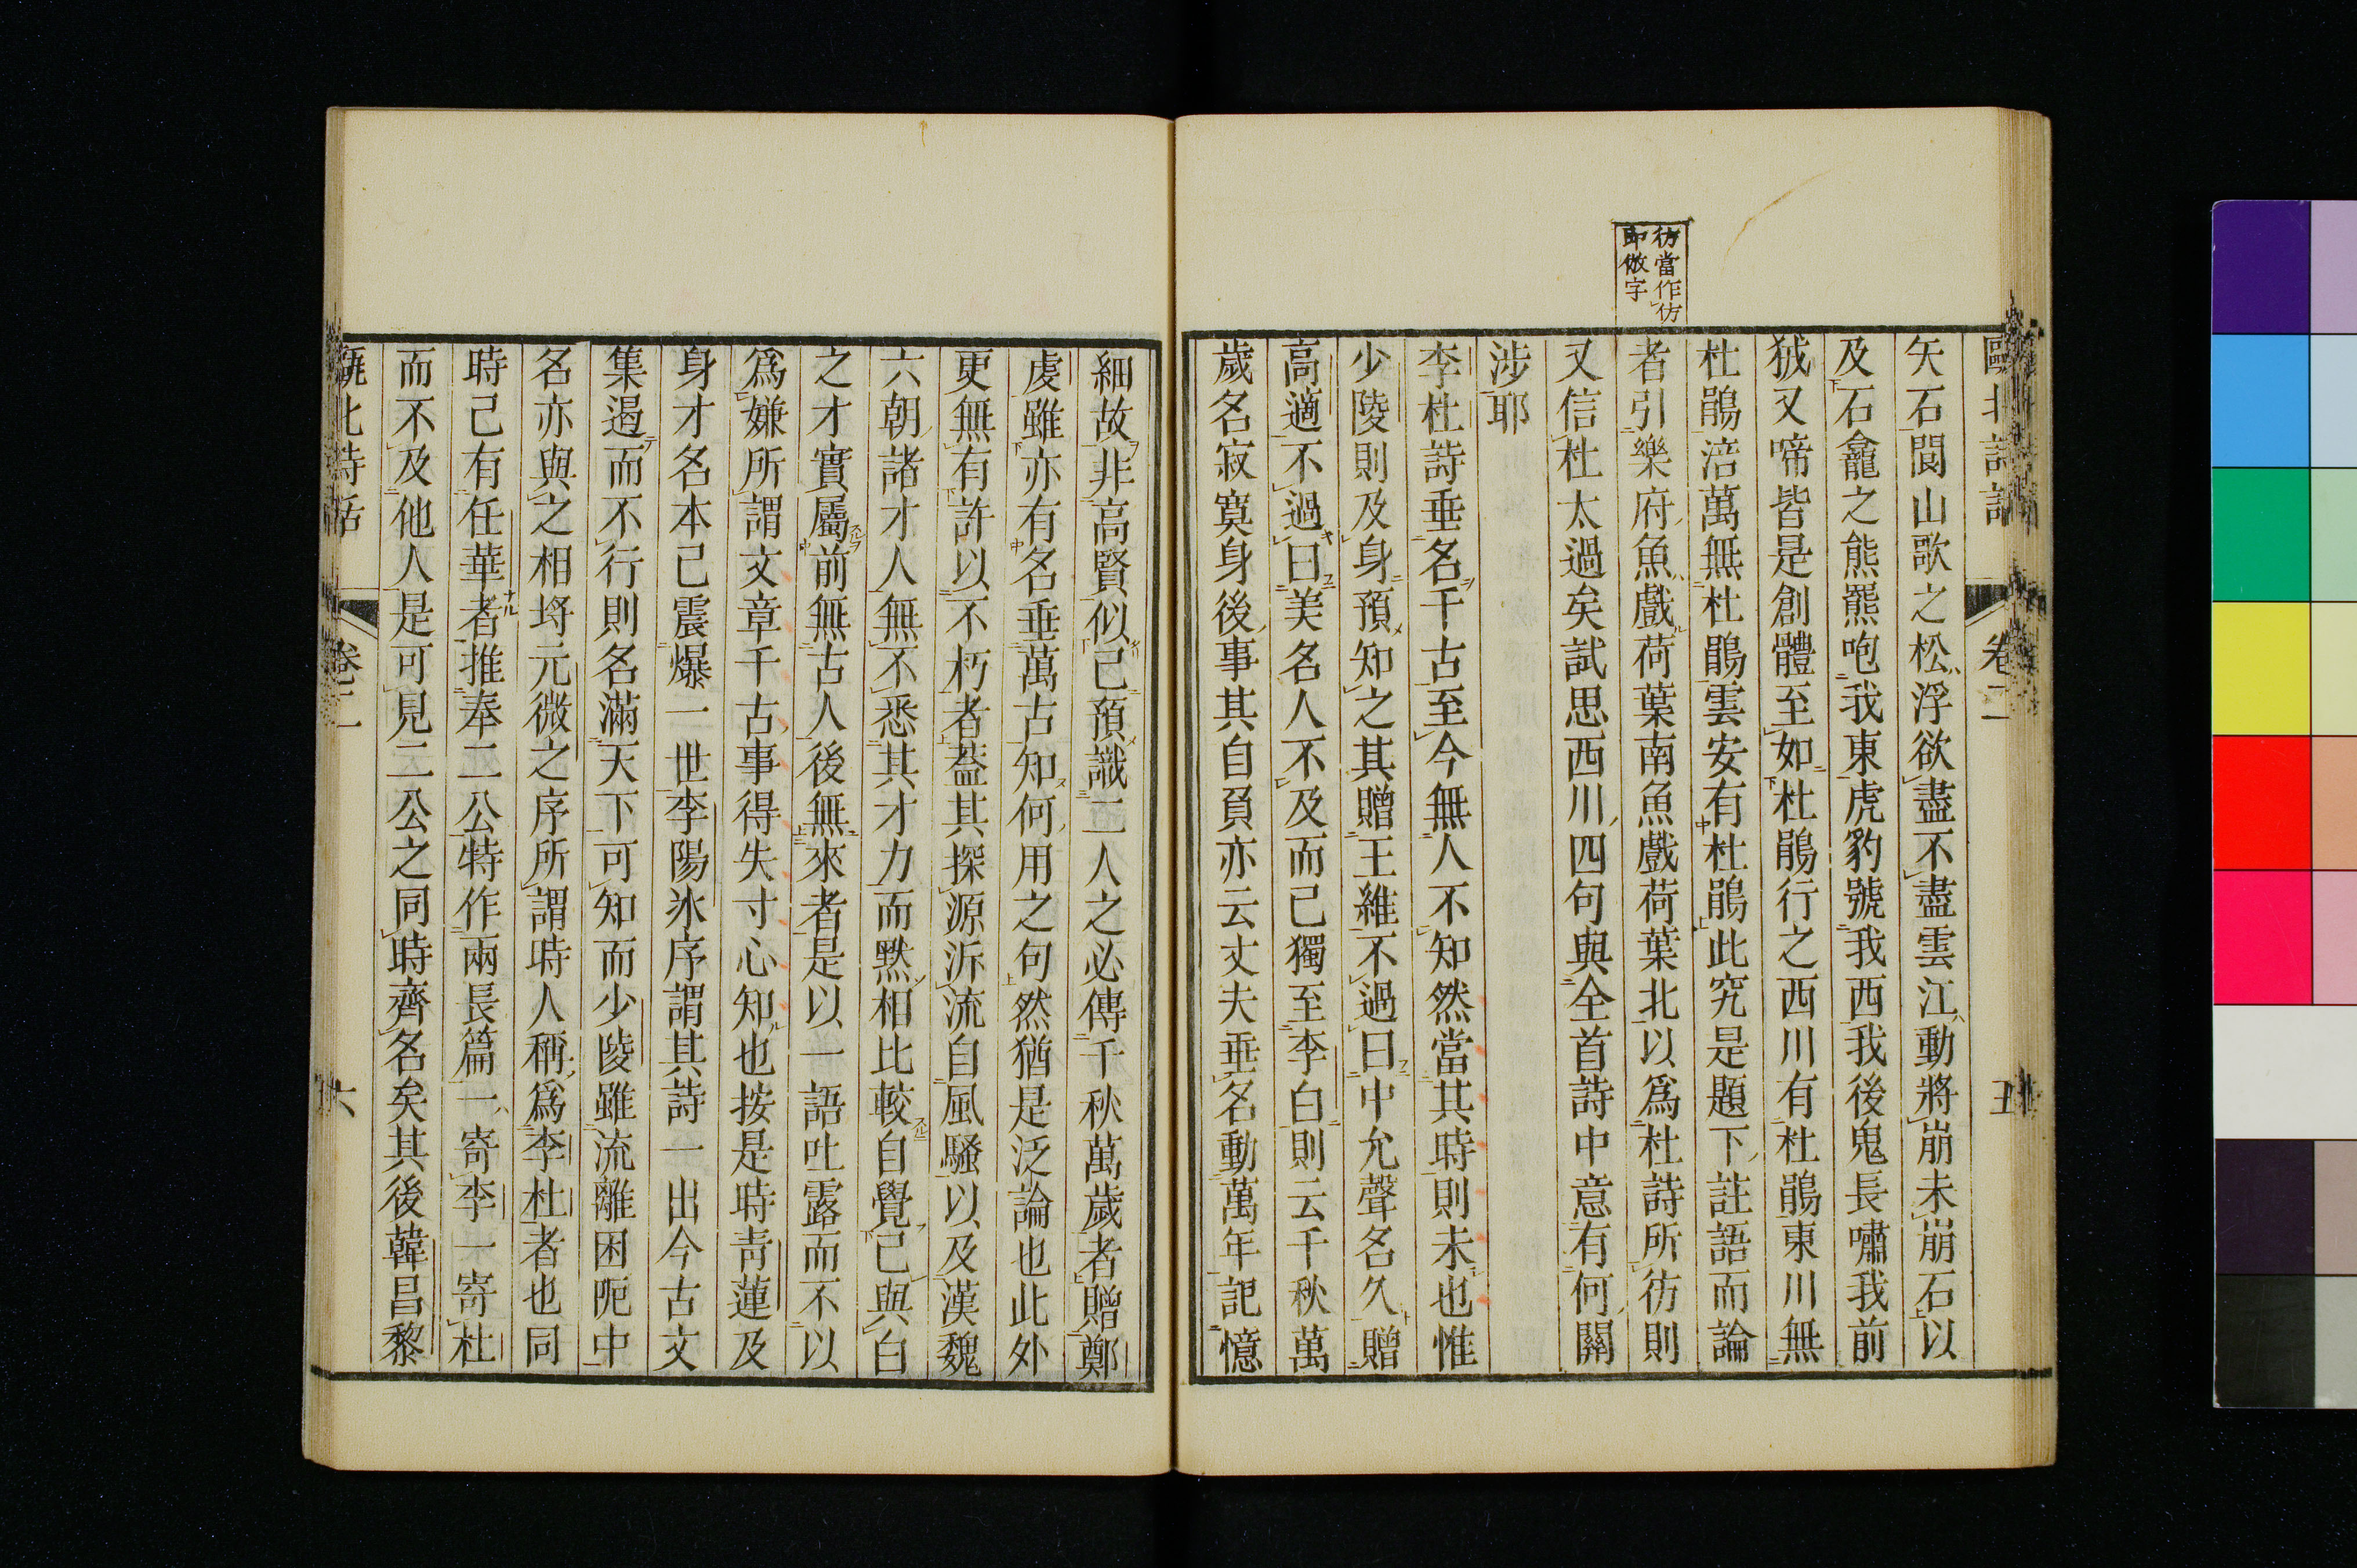 甌北詩話 卷二 五
彷當作仿
即倣字
矢石閬山歌之松浮欲盡不盡雲江動將崩未崩石以
及石龕之熊羆咆我東虎豹號我西我後鬼長嘯我前
狨又啼皆是創體至如杜鵑行之西川有杜鵑東川無
杜鵑涪萬無杜鵑雲安有杜鵑此究是題下註語而論
者引樂府魚戲荷葉南魚戲荷葉北以爲杜詩所彷則
又信杜太過矣試思西川四句與全首詩中意有何關
涉耶
李杜詩垂名千古至今無人不知然當其時則未也惟
少陵則及身預知之其贈王維不過曰中允聲名久贈
高適不過曰美名人不及而己獨至李白則云千秋萬
歲名寂寞身後事其自負亦云丈夫垂名動萬年記憶
細故非高賢似己預識二人之必傳千秋萬歲者贈鄭
虔雖亦有名垂萬古知何用之句然猶是泛論也此外
更無有許以不朽者葢其探源泝流自風騷以及漢魏
六朝諸才人無不悉其才力而黙相比較自覺己與白
之才實屬前無古人後無來者是以一語吐露而不以
爲嫌所謂文章千古事得失寸心知也按是時靑蓮及
身才名本己震爆一世李陽氷序謂其詩一出今古文
集遏而不行則名滿天下可知而少陵雖流離困阨中
名亦與之相埒元微之序所謂時人稱爲李杜者也同
時己有任華者推奉二公特作兩長篇一寄李一寄杜
而不及他人是可見二公之同時齊名矣其後韓昌黎
甌北詩話 卷二 六